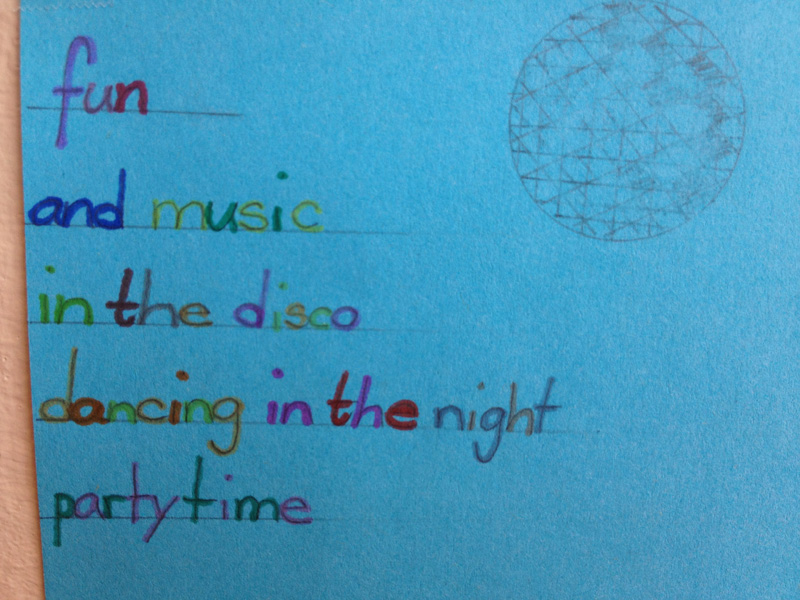 fun
and music
in the disco
dancing in the night
partytime